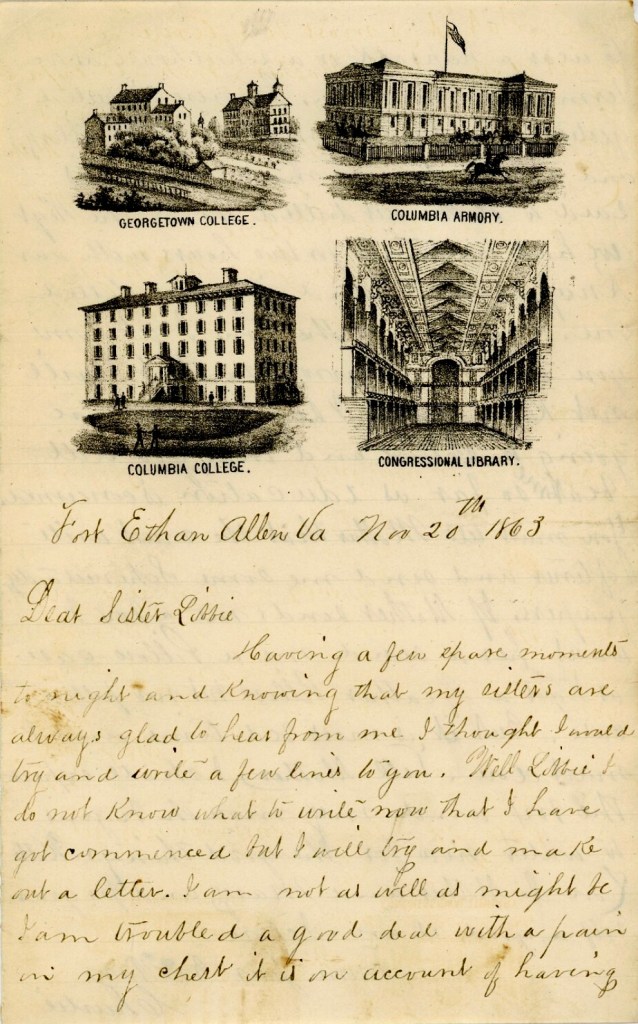 GEORGETOWN COLLEGE.
COLUMBIA ARMORY.
COLUMBIA COLLEGE.
CONGRESSIONAL LIBRARY.
Fort Ethan Allen Va Nov 20th 1863
Dear Sister Libbie
Having a few spare moments
to night and Knowing that my sisters are
always glad to hear from me I thought I would
try and write a few lines to you. Well Libbie I
do not Know what to write now that I have
got commenced but I will try and make
out a letter. I am not as well as might be
I am troubled a good deal with a pain
in my chest it is on account of having